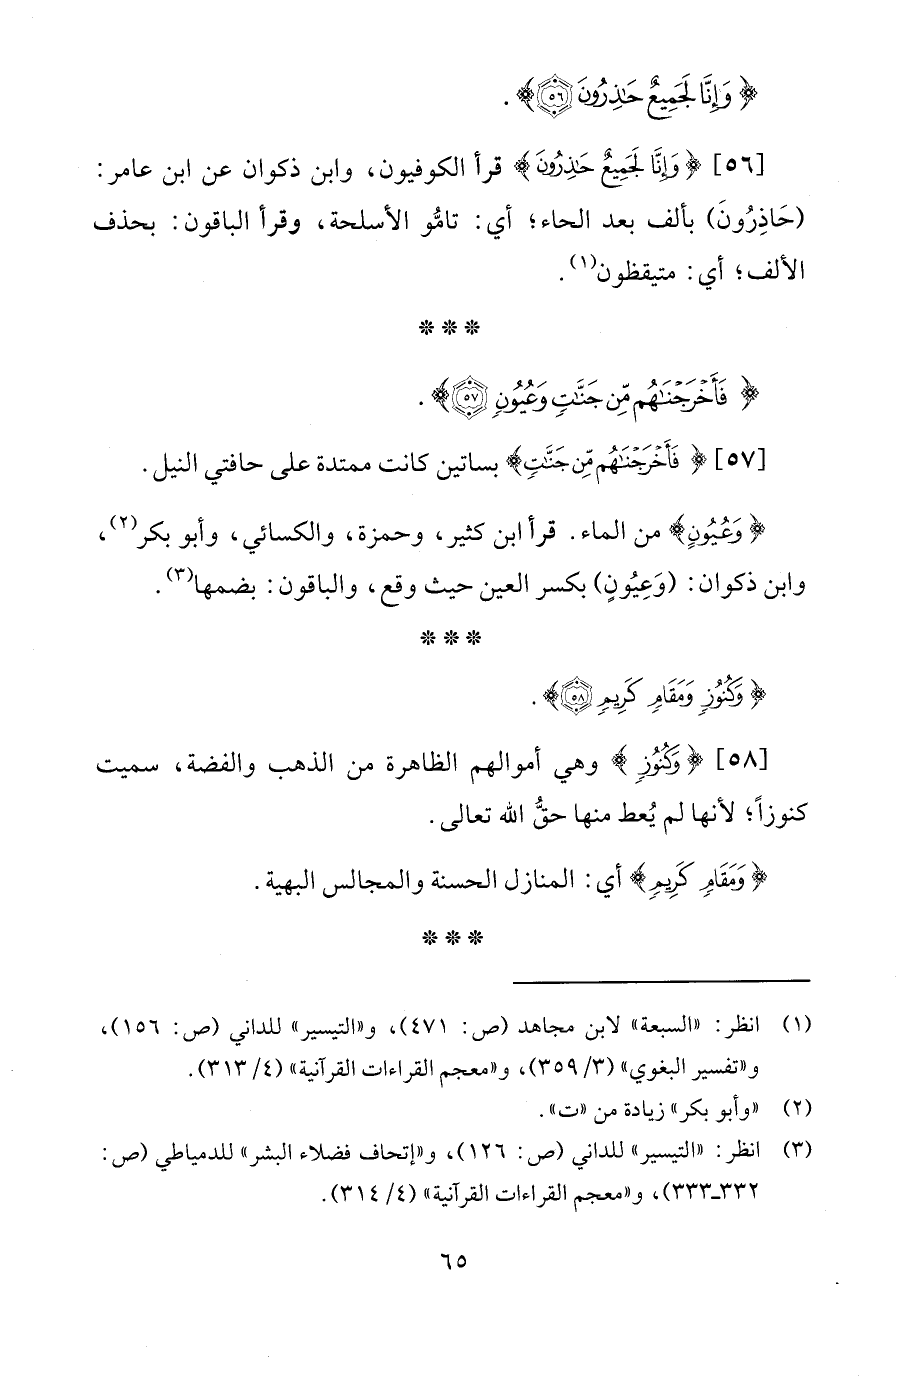 ﴿ وَإِنَّا لَجَمِيعٌ حَٰذِرُونَ ٥٦﴾ .
[٥٦] ﴿ وَإِنَّا لَجَمِيعٌ حَٰذِرُونَ ﴾ قرأ الكوفيون، وابن ذكوان عن ابن عامر:
(حَاذِرُونَ) بألف بعد الحاء؛ أي: تامُّو الأسلحة، وقرأ الباقون: بحذف
الألف؛ أي: متيقظون(١).
* * *
﴿ فَأَخْرَجْنَٰهُم مِّن جَنَّٰتٍ وَعُيُونٍ ٥٧﴾ .
[٥٧] ﴿ فَأَخْرَجْنَٰهُم مِّن جَنَّٰتٍ﴾ بساتين كانت ممتدة على حافتي النيل.
﴿ وَعُيُونٍ﴾ من الماء. قرأ ابن كثير، وحمزة، والكسائي، وأبو بكر(٢)،
وابن ذكوان: (وَعِيُونٍ) بكسر العين حيث وقع، والباقون: بضمها(٣).
* * *
﴿ وَكُنُوزٍ وَمَقَامٍ كَرِيمٍ ٥٨﴾ .
[٥٨] ﴿ وَكُنُوزٍ ﴾ وهي أموالهم الظاهرة من الذهب والفضة، سميت
كنوزاً؛ لأنها لم يُعط منها حقُّ الله تعالى.
﴿ وَمَقَامٍ كَرِيمٍ﴾ أي: المنازل الحسنة والمجالس البهية.
* * *
(١) انظر: «السبعة» لابن مجاهد (ص: ٤٧١)، و«التيسير» للداني (ص: ١٥٦)،
و«تفسير البغوي» (٣/ ٣٥٩)، و«معجم القراءات القرآنية» (٤/ ٣١٣).
(٢) «وأبو بكر» زيادة من «ت».
(٣) انظر: «التيسير» للداني (ص: ١٢٦)، و«إتحاف فضلاء البشر» للدمياطي (ص:
٣٣٢ـ٣٣٣)، و«معجم القراءات القرآنية» (٤/ ٣١٤).
٦٥